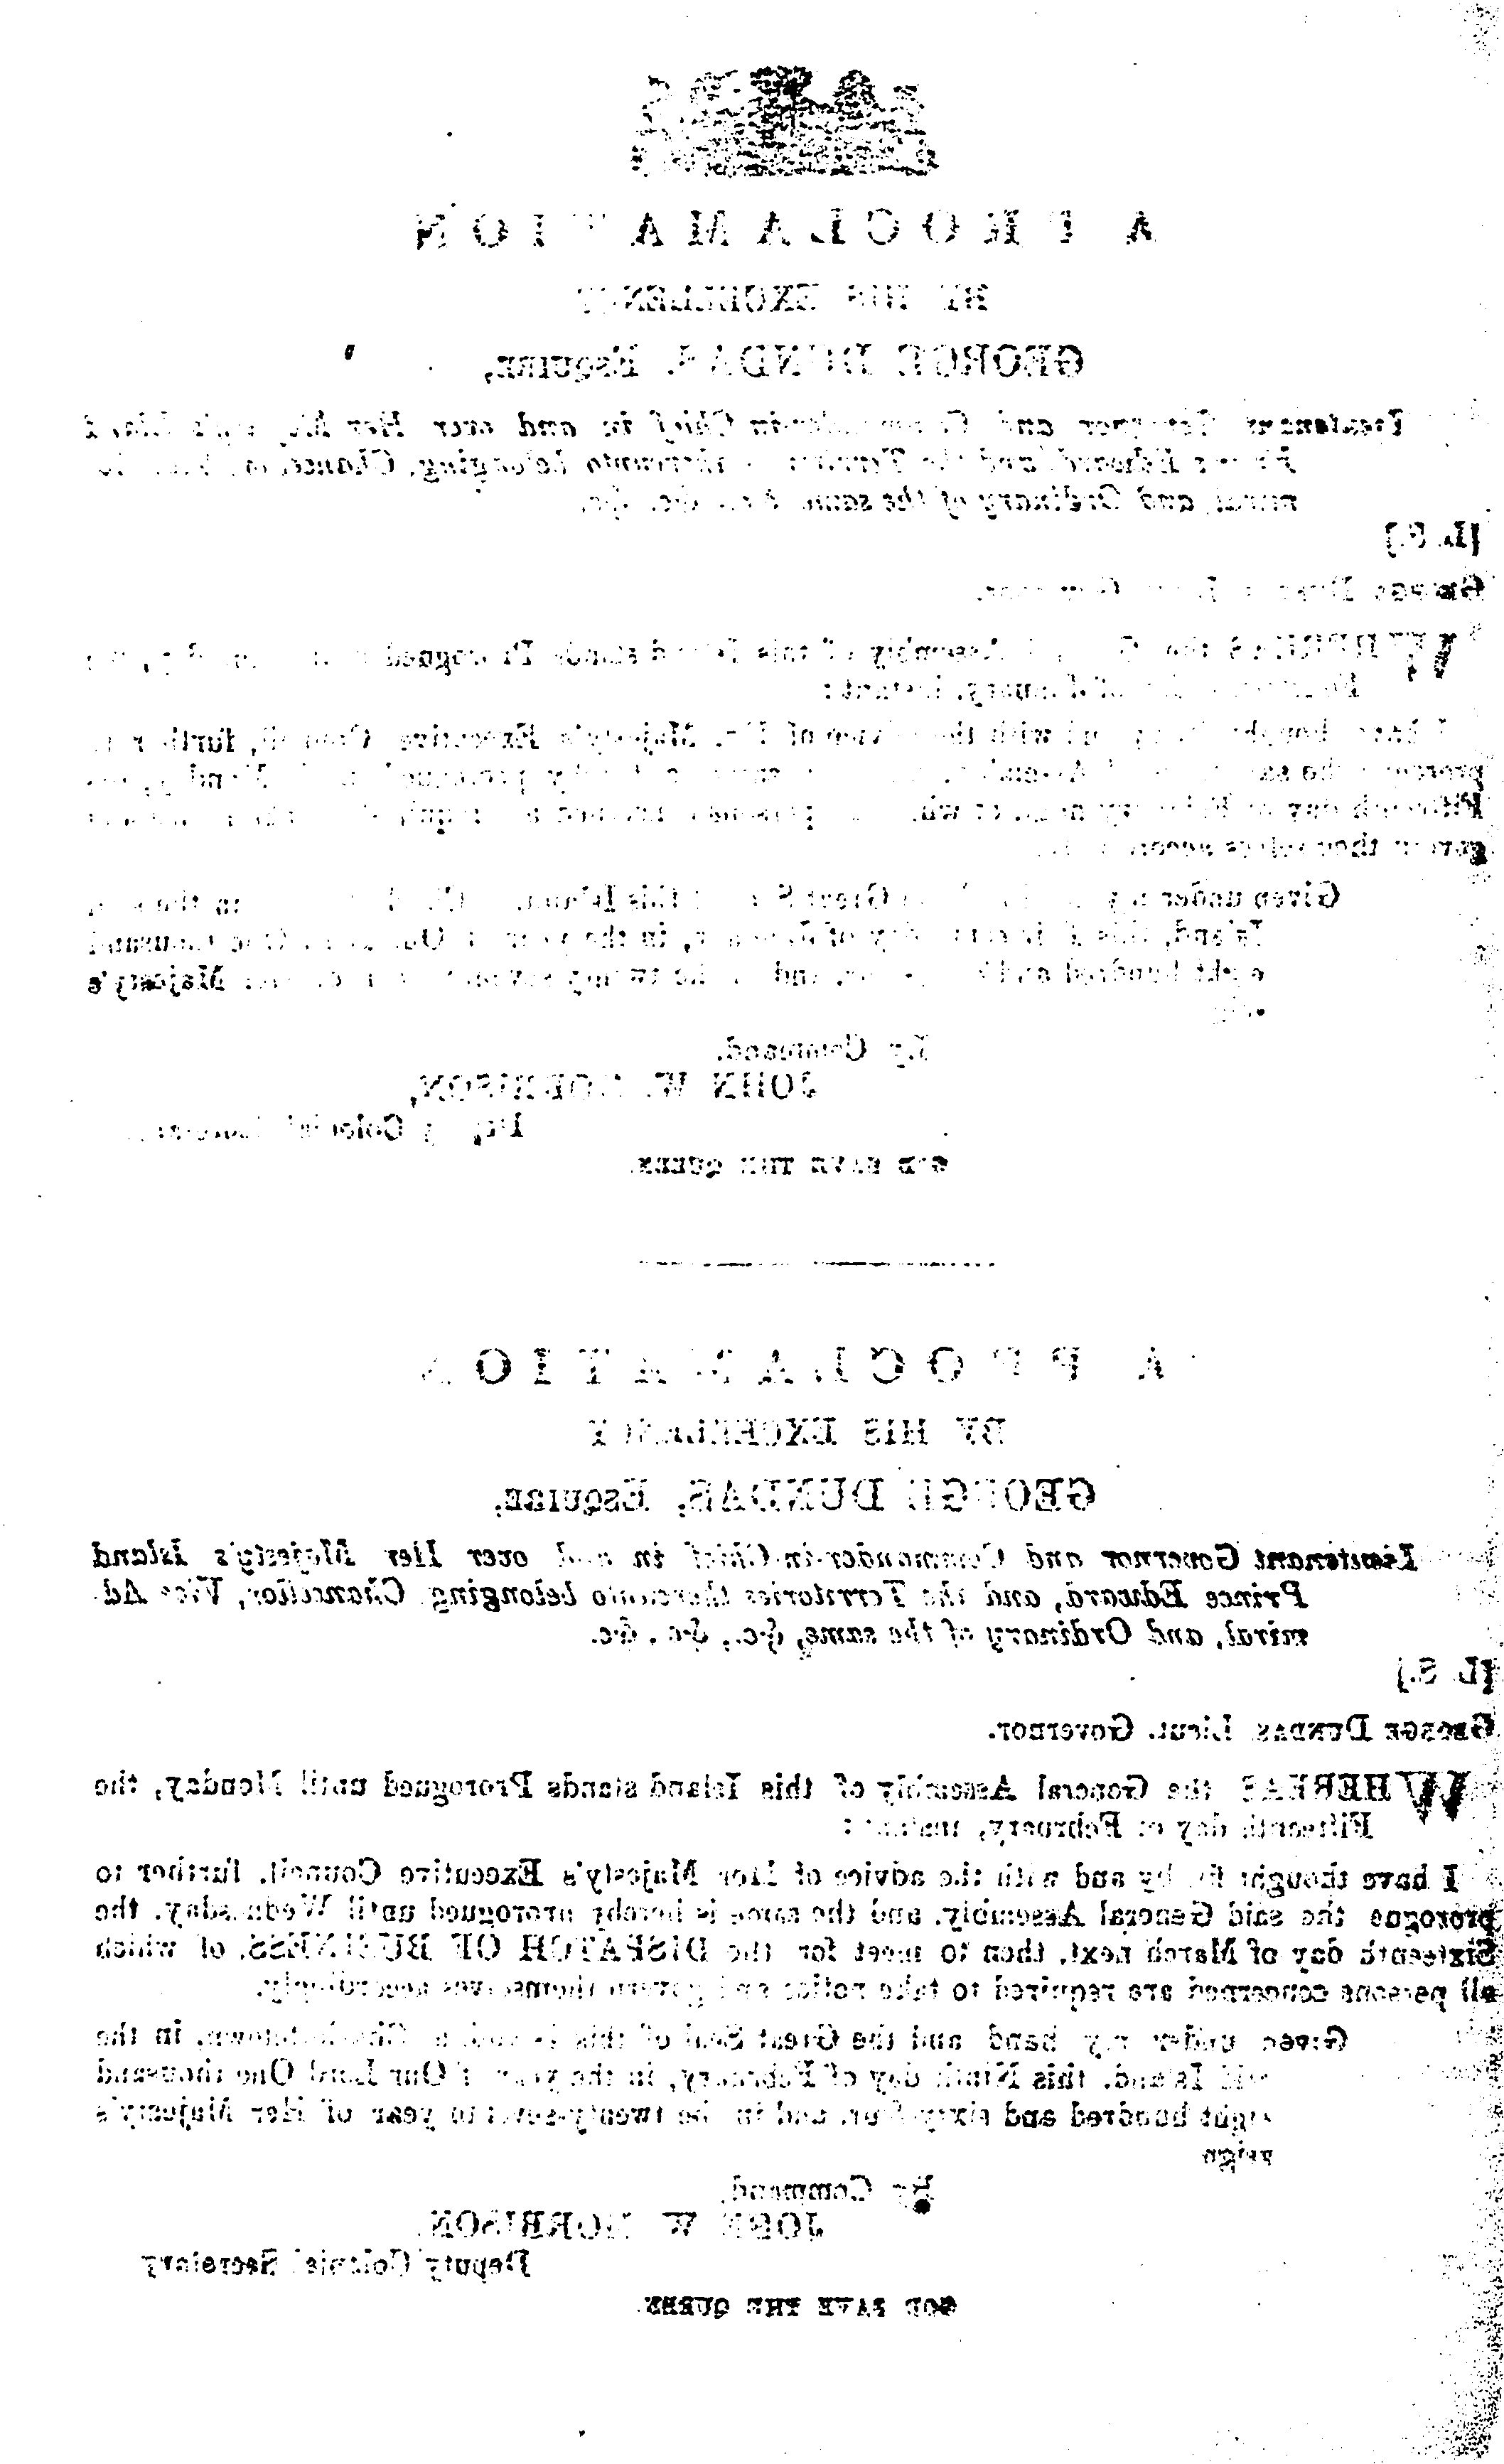 A PROCLAMATION
BY HIS EXCELLENCY
GEORGE DUNDAS, ESQUIRE,
Lieutenant Governor and Commander-in-Chief in and over Her Majesty's Island
Prince Edward, and the Territories thereunto belonging, Chancellor,
miral, and Ordinary of the same, &c. &c.
[L. S.]
GEORGE DUNDAS, Lieut. Governor.
WHEREAS the General Assembly of this Island stands Prorogued
of January, instant:
I have thought and with the advice of Her Majesty's Executive Council, further to
prorogue the said Assembly, prorogued
day of February next, of which persons concerned required
govern themselves
Given under my Great Seal of this Island, in the said
Island, this day of January, in the year of Our Lord One thousand
eight hundred and and in the twenty-seventh Her Majesty's
reign
By Command,
JOHN W. MORRISON,
Deputy Colonial Secretary
GOD SAVE THE QUEEN.
A PROCLAMATION
BY HIS EXCELLENCY
GEORGE DUNDAS, ESQUIRE,
Lieutenant Governor and Commander-in-Chief in and over Her Majesty's Island
Prince Edward, and the Territories thereunto belonging, Chancellor, Vice Ad-
miral, and Ordinary of the same, &c., &c., &c.
[L. S.]
GEORGE DUNDAS, Lieut. Governor.
WHEREAS the General Assembly of this Island stands Prorogued until Monday, the
Fifteenth day of February, instant:
I have thought fit, by and with the advice of Her Majesty's Executive Council, further to
prorogue the said General Assembly, and the same is hereby prorogued until Wednesday, the
Sixteenth day of March next, then to meet for the DISPATCH OF BUSINESS, of which
all persons concerned are required to take notice and govern themselves accordingly.
Given under my hand and the Great Seal of this Island, at Charlottetown, in the
said Island, this Ninth day of February, in the year of Our Lord One thousand
eight hundred and sixty-four, and in the twenty-seventh year of Her Majesty's
reign
By Command,
JOHN W. MORRISON,
Deputy Colonial Secretary
GOD SAVE THE QUEEN.